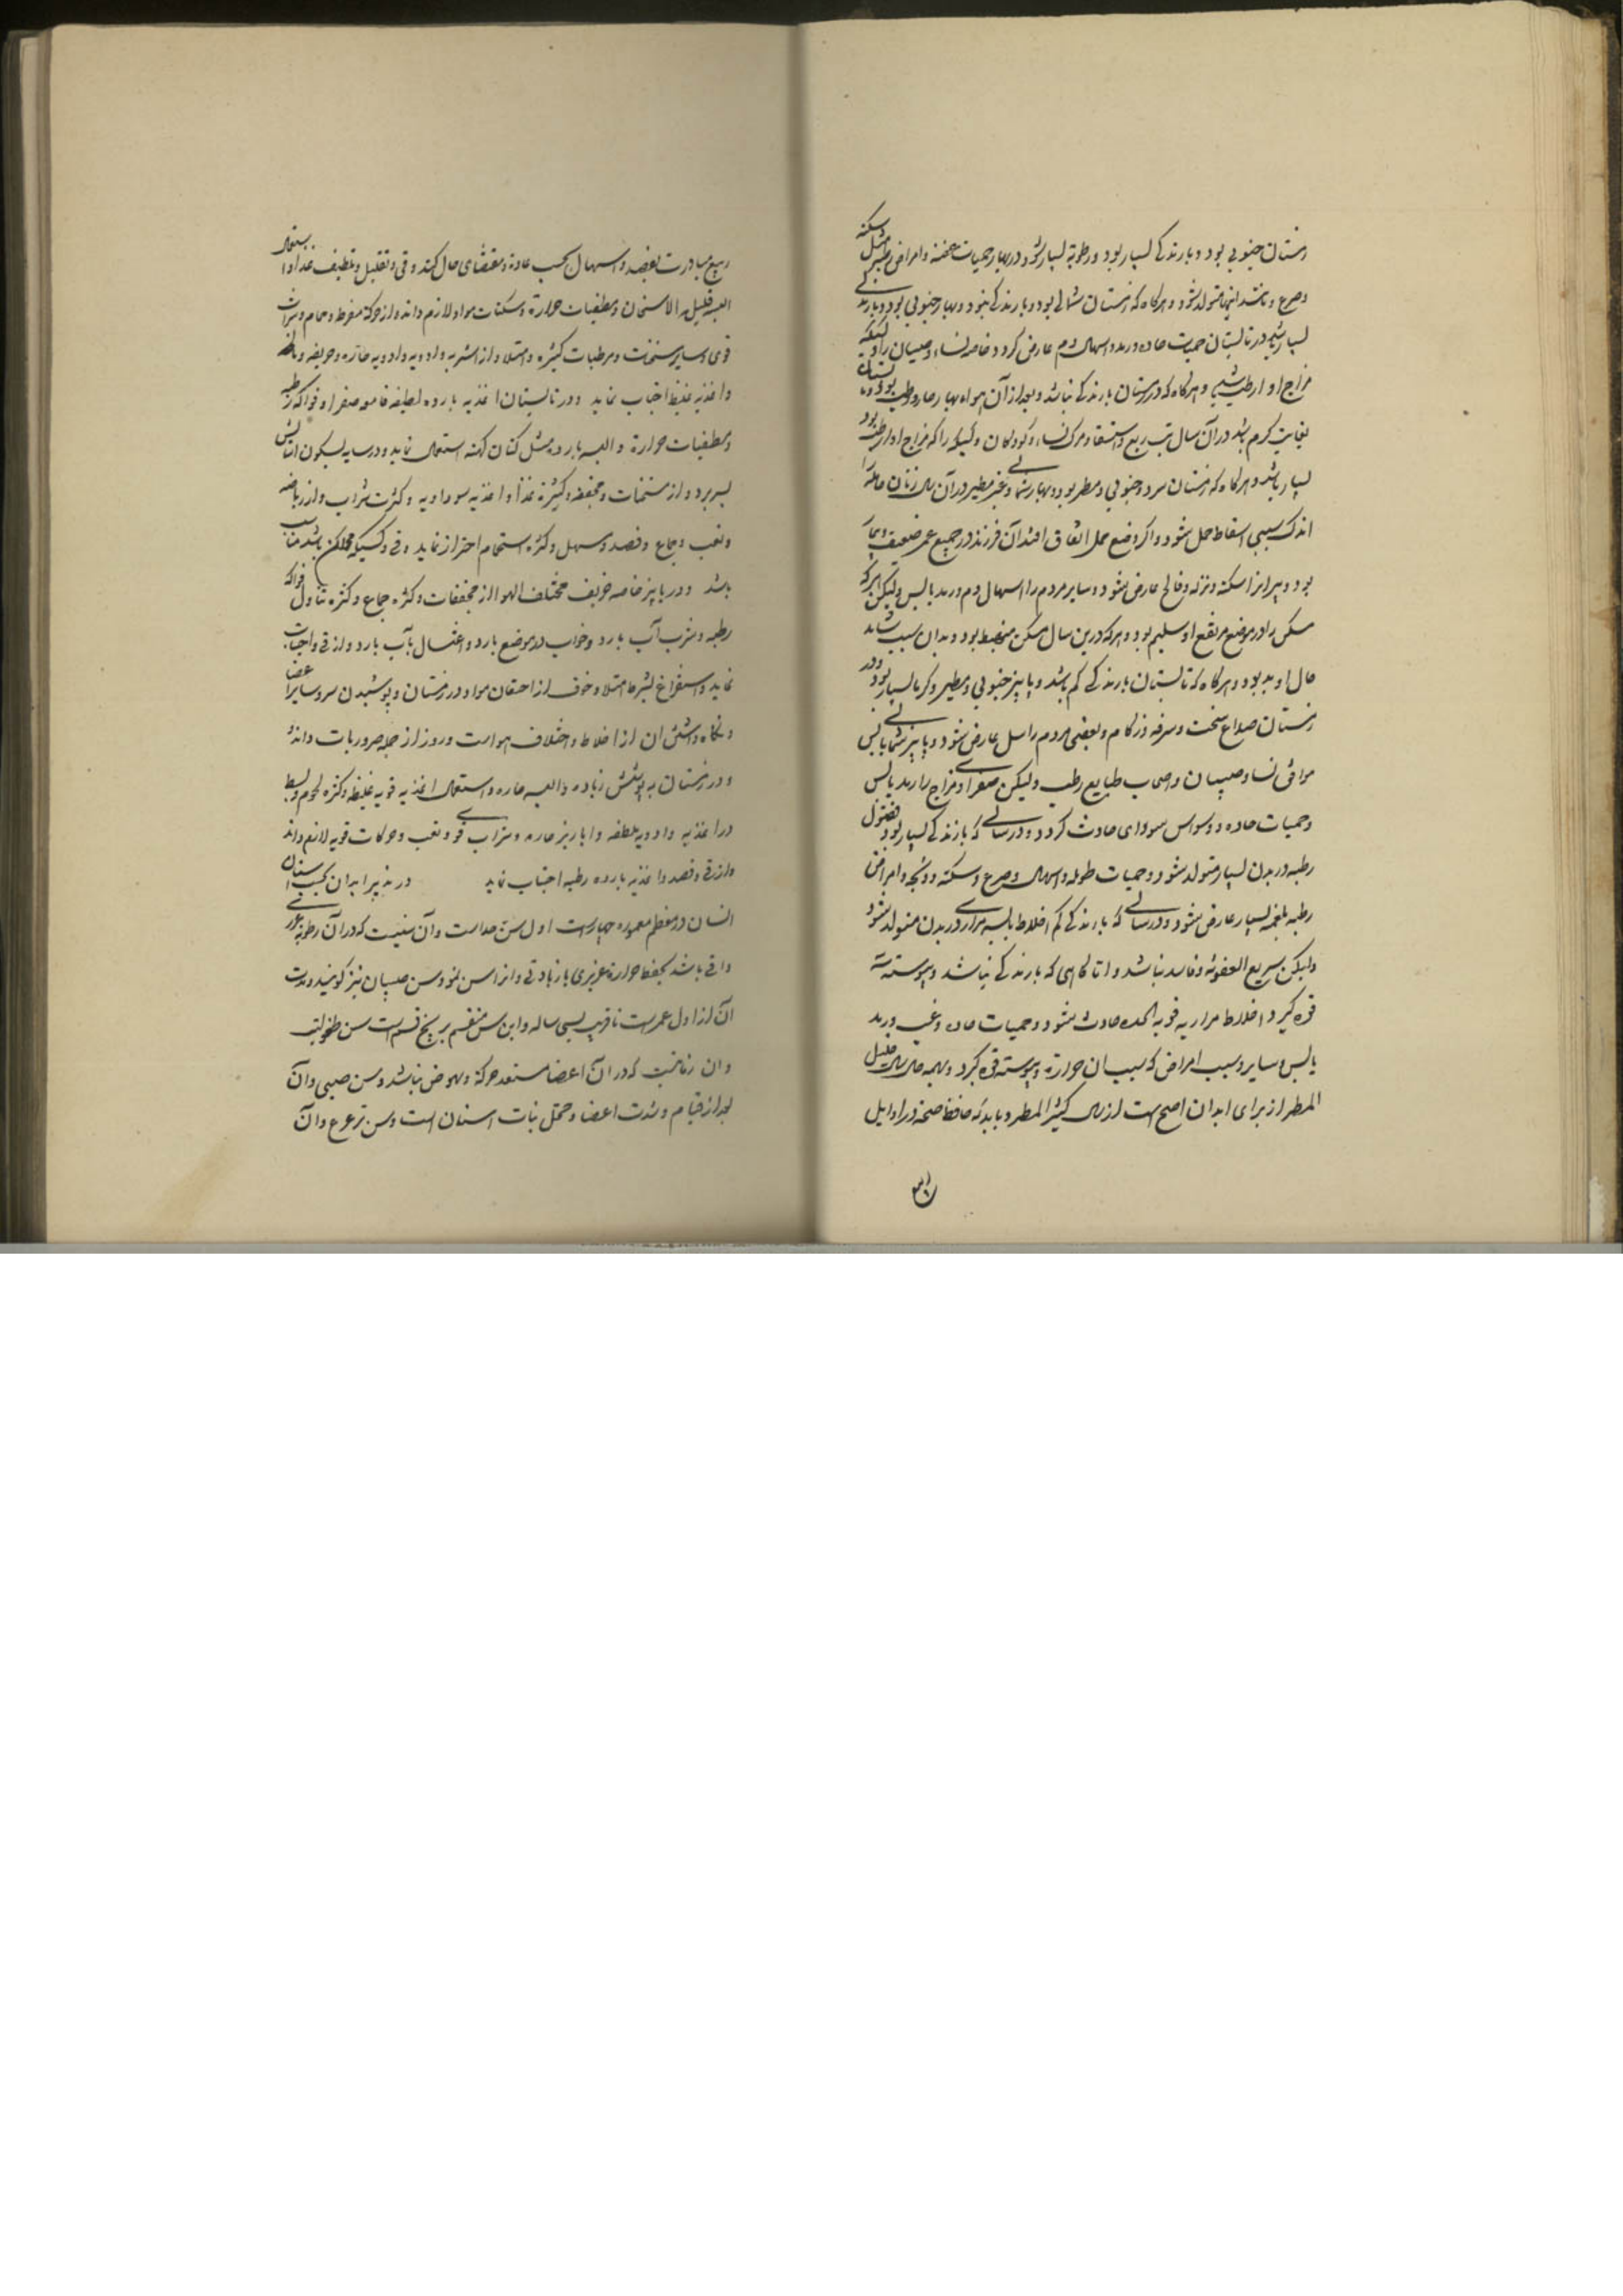 زمستان جنوبی بود و بارندگی بسیار بود و رطوبة بسیار شود و در بهار حمیات عفنه و امراض مثل سکته
و صرع و مانند اینها متولد شود و هرگاه که زمستان شمالی بود و بارندگی نبود و بهار جنوبی بود و بارندگی
بسیار باشد در تابستان حمیات حاده و رمد و اسهال دم عارض گردد خاصه نساء و صبیان را و کسیکه
مزاج او ارطب باشد و هرگاه که در زمستان بارندگی نباشد و بعد از آن هواء بهار حار و رطب بود و تابستان
بغایت گرم باشد در آن سال تب ربع و استسقا و مرک نساء و کودکان و کسیکه را که مزاج او ارطب بود
بسیار باشد و هرگاه که زمستان سرد و جنوبی و ممطر بود و بهار شمالی و غیر مطیر در آن سال زنان حامله را
اندک سببی اسقاط حمل شود و اگر وضع حمل اتفاق افتد آن فرزند در جمیع عمر ضعیف و بیمار
بود و پیرانرا سکته و نزله و فالج عارض شود و سایر مردم را اسهال دم و رمد یابس ولیکن هرکه
مسکن را در موضع مرتفع او سلیم بود و هرکه درین سال مسکن منهبط بود و بدان سبب شاید
حال او بد بود و هرگاه که تابستان بارندگی کم باشد و پاییز جنوبی و مطیر و گرما بسیار بود در
زمستان صداع سخت و سرفه و زکام و بعضی مردم را سل عارض شود و پاییز شمالی یابس
موافق نسا و صبیان و اصحاب طبایع رطب ولیکن صفراوی مزاج را رمد یابس
و حمیات حاده و وسواس سودای حادث گردد و در سالی که بارندگی بسیار بود فضول
رطبه در بدن بسیار متولد شود و حمیات طوله و اسهال و صرع و سکته و ذبحه و امراض
رطبه بلغمیه بسیار عارض شود و در سالی که بارندگی کم اخلاط یابسه مراری در بدن متولد شود
ولیکن سریع العفونه و فاسد نباشد و اما گاهی که بارندگی نباشد و یبوسته
قوه گیرد اخلاط مراریه قویه الحده حادث شود و حمیات حاده و غب و رمد
یابس و سایر و سبب امراض که سبب آن حرارة و یبوسته قوه گیرد و بهمه حال سال قلیل
المطر از برای ابدان اصح است از سال کثیر المطر و باید که حافظ صحة در اوایل
ربیع مبادرت بفصد و اسهال بحسب عادة و مقتضای حال کند و قی و تقلیل و تلطیف غذا و استعمال
البسه قلیل الاسخان و مطفیات حرارة و مسکنات مواد لازم داند و از حرکة مفرط و حمام و شراب
قوی و سایر مسخنات و مرطبات کثیره و امتلا و از اشربه و ادویه حاره و حریفه و مالحه
و اغذیه غلیظ اجتناب نماید و در تابستان اغذیه بارده لطیفه قامعه صفرا و فواکه رطبه
و مطفیات حرارة و البسه بارده مثل کتان کهنه استعمال نماید و در سایه بسکون و آسایش
بسر برد و از مسخنات و مجففه و کثیرة غذا و اغذیه سوداویه و کثرت شراب و از ریاضه
و تعب و جماع و فصد و مسهل و کثرة استحمام احتراز نماید و قی و کسیکه ممکن باشد مناسب
باشد و در پاییز خاصه خریف مختلف الهوا از مجففات و کثرة جماع و کثرة تناول فواکه
رطبه و شرب آب بارد و خواب در موضع بارد و اغتسال بآب بارد و از قی واجتناب
نماید و استفراغ بشرط امتلا و خوف از احتقان مواد در زمستان و پوشیدن سر و سایر اعضا
و نگاه داشتن آن از اخلاط و اختلاف هواست و روز از جمله ضروریات داند
و در زمستان به پوشش زیاده و البسه حاره و استعمال اغذیه قویه غلیظه و کثرة لحوم و بسط
در اغذیه و ادویه ملطفه و ابازیر حاره و شراب قوی و تعب و حرکات قویه لازم داند
و از قی و فصد و اغذیه بارده رطبه اجتناب نماید در تدبیر ابدان بحسب اسنان
انسان در معظم معموره چهار است اول سن حداست و آن سنیست که در آن رطوبة غریزی
وافی باشد بحفظ حرارة غریزی با زیادتی و آنرا سن نمو و سن صبیان نیز گویند و مدت
آن از اول عمر است تا قریب بسی ساله و این سن منقسم بر پنج قسم است سن طفولیت
و آن زمانیست که در آن اعضا مستعد حرکة و نهوض نباشد و سن صبی و آن
بعد از قیام و شدت اعضا و قبل نبات اسنان است و سن ترعرع و آن